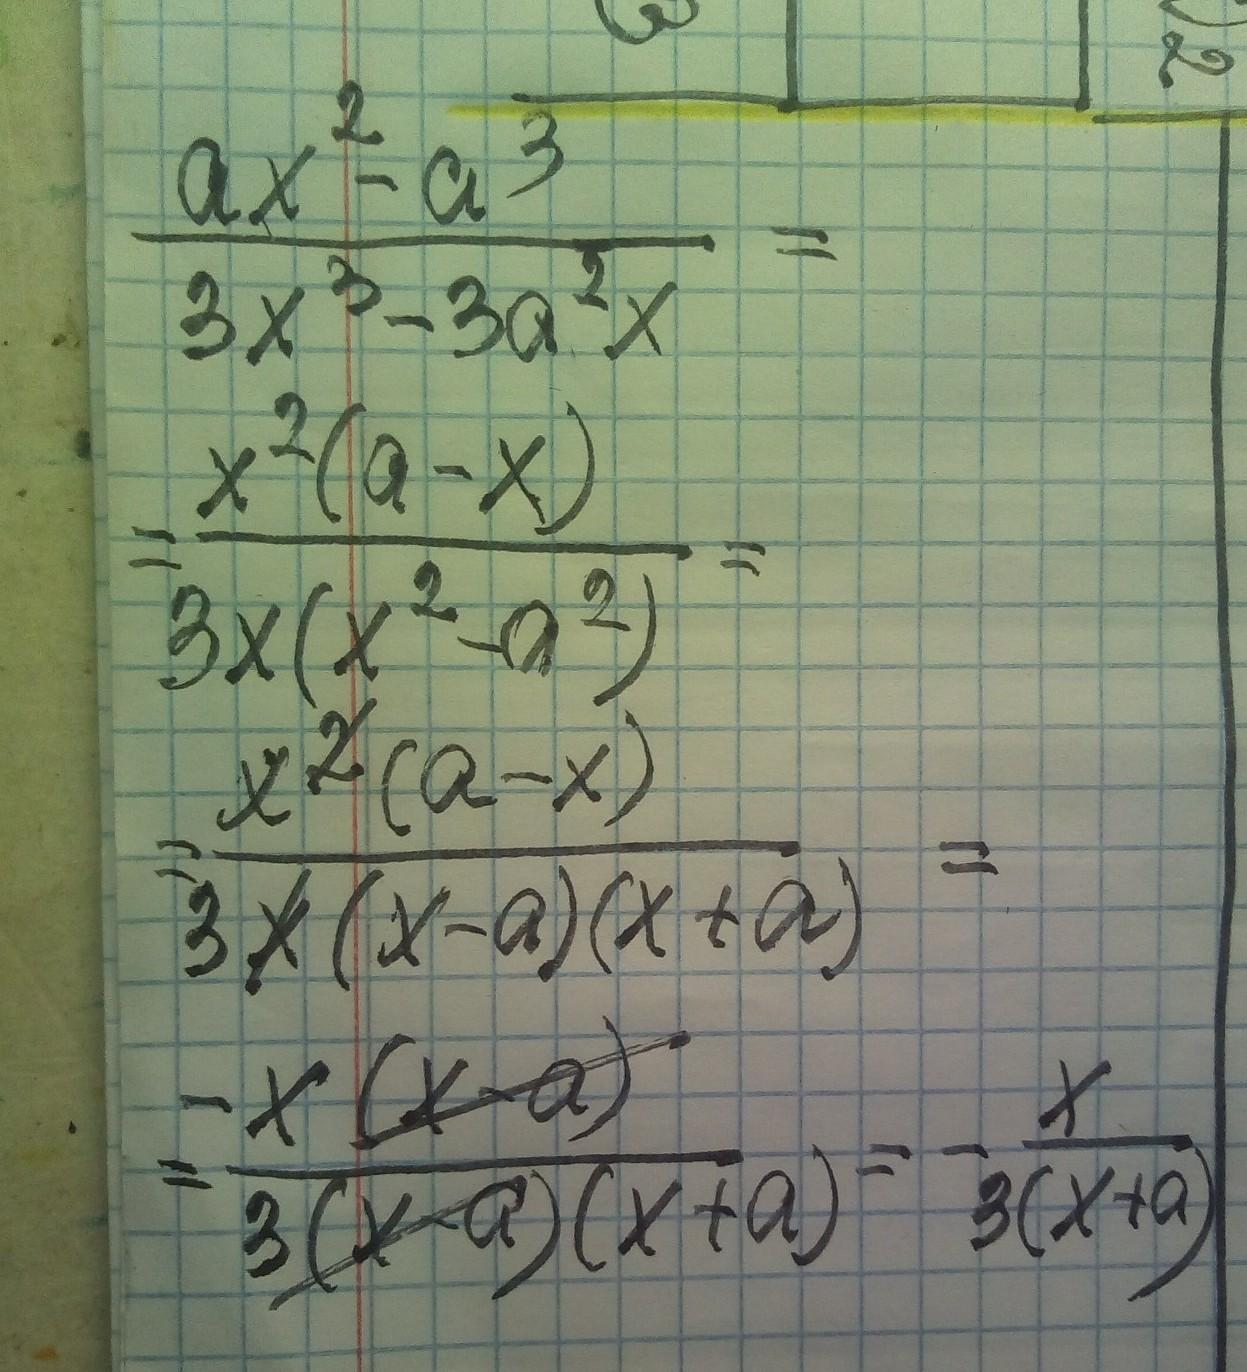 ax² - a³
3x³ - 3a²x
=
x²(a - x)
=
3x(x² - a²)
=
x²(a - x)
=
3x(x - a)(x + a)
=
-x(x - a)
=
3(x - a)(x + a)
= -
x
3(x + a)